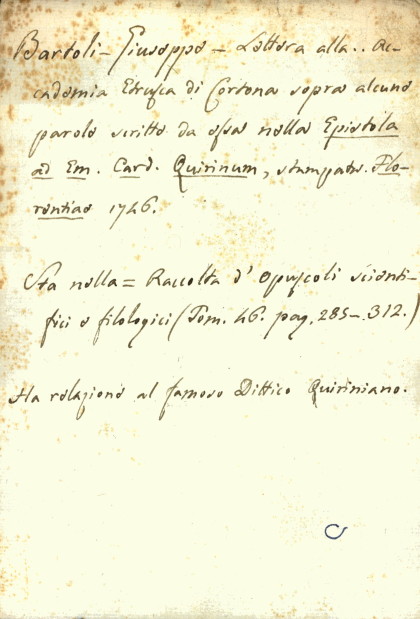 Bartoli - Giuseppe - Lettera alla.. Ac-
cademia Etrusca di Cortona sopra alcune
parole scritte da essa nella Epistola
ad Em. Card. Quirinum, stampata. Flo-
rentiae 1746.
Sta nella = Raccolta d' Opuscoli scienti-
fici e filologici (Tom. 46. pag. 285-312.)
Ha relazione al famoso Dittico Quiriniano.